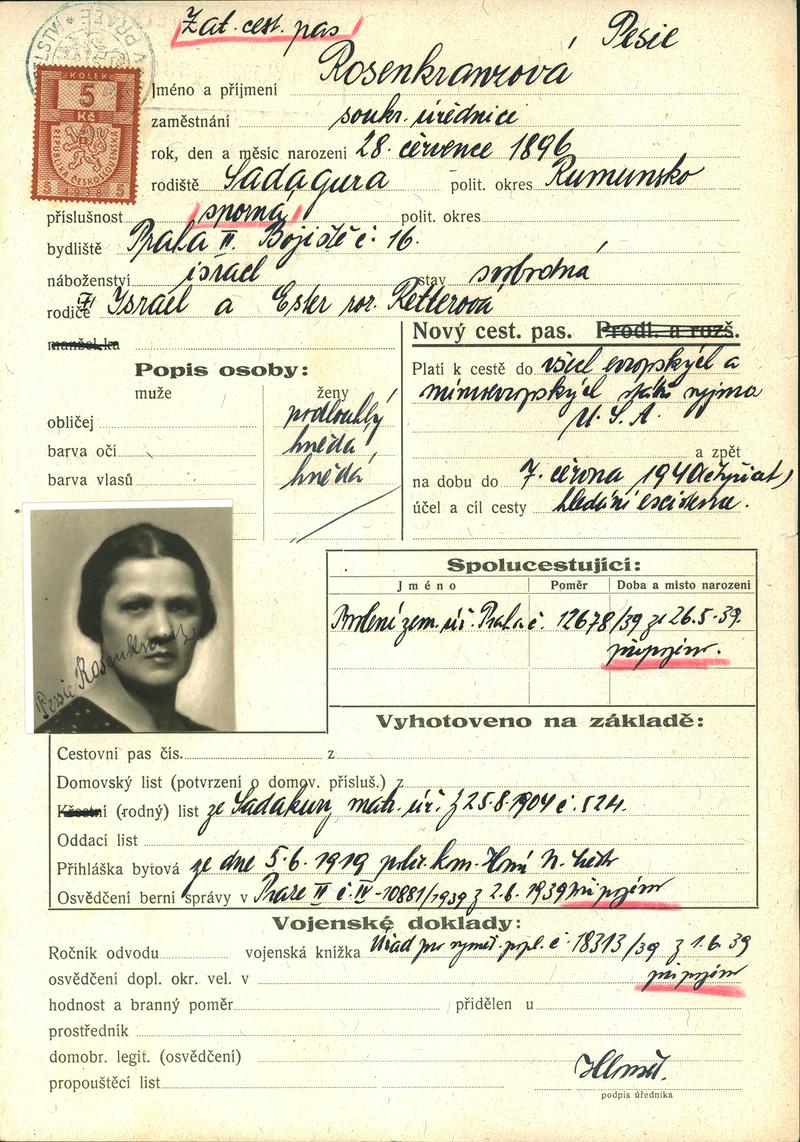 Zat. cest. pas
Pesie
Jméno a příjmení Rosenkranzová
zaměstnání soukr. úřednice
rok, den a měsíc narození 28. července 1896
rodiště Sadagura polit. okres Rumunsko
příslušnost sporná polit. okres
bydliště Praha II. Bojiště č. 16.
náboženství israel stav svobodná
rodiče Israel a Ester roz. Retterová
manžel.ka
KOLEK
5
Kč
REPUBLIKA ČESKOSLOVENSKÁ
5 1939 5
V PRAZE
Popis osoby:
muže ženy
obličej podlouhlý
barva očí hnědá
barva vlasů hnědá
Nový cest. pas. Prodl. a rozš.
Platí k cestě do všech evropských a
mimoevropských států vyjma
U.S.A.
a zpět
na dobu do 7. června 1940
účel a cíl cesty hledání existence.
Pesie Rosenkranz
Spolucestující:
Jméno Poměr Doba a místo narození
zem. úř. Praha č. 12678/39 ze 26.5.39.
připojeno.
Vyhotoveno na základě:
Cestovní pas čís. z
Domovský list (potvrzení o domov. přísluš.) z
Křestní (rodný) list ze Sadakury mat. úř. z 25.8.1904 č. 524.
Oddací list
Přihláška bytová ze dne 5.6.1919 polic. kom.
Osvědčení berní správy v Praze II č. IV-10881/1939 z 2.6.1939 připojeno
Vojenské doklady:
Ročník odvodu vojenská knížka Úřad pro vyměř. popl. č. 18313/39 z 1.6.39
osvědčení dopl. okr. vel. v připojeno
hodnost a branný poměr přidělen u
prostředník
domobr. legit. (osvědčení)
propouštěcí list
podpis úředníka